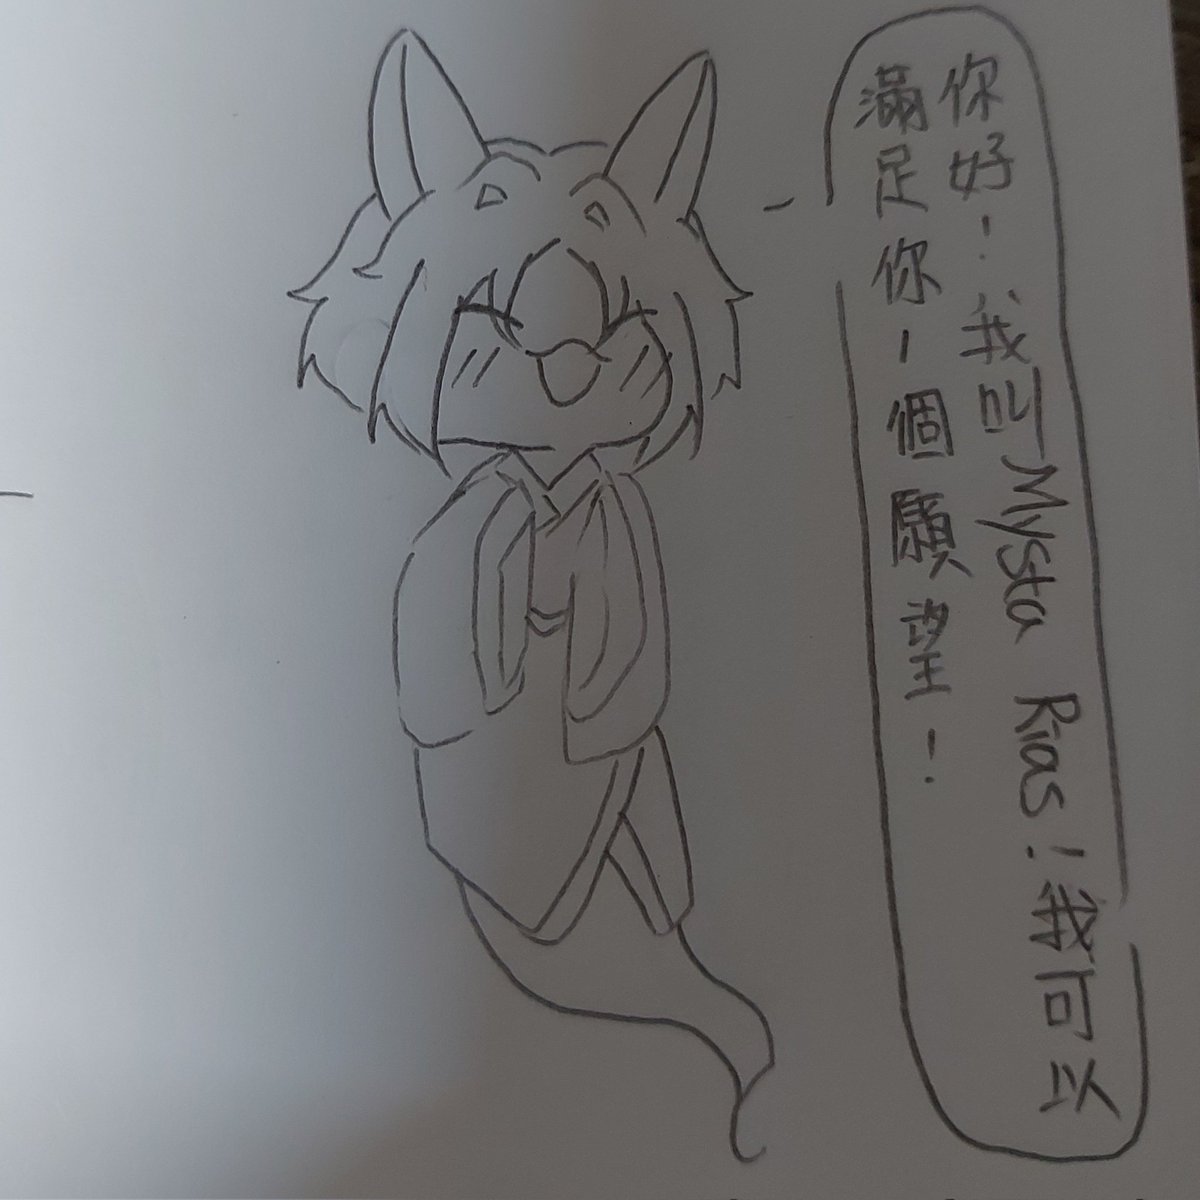 你好!我叫Mysta Rias!我可以
滿足你一個願望!